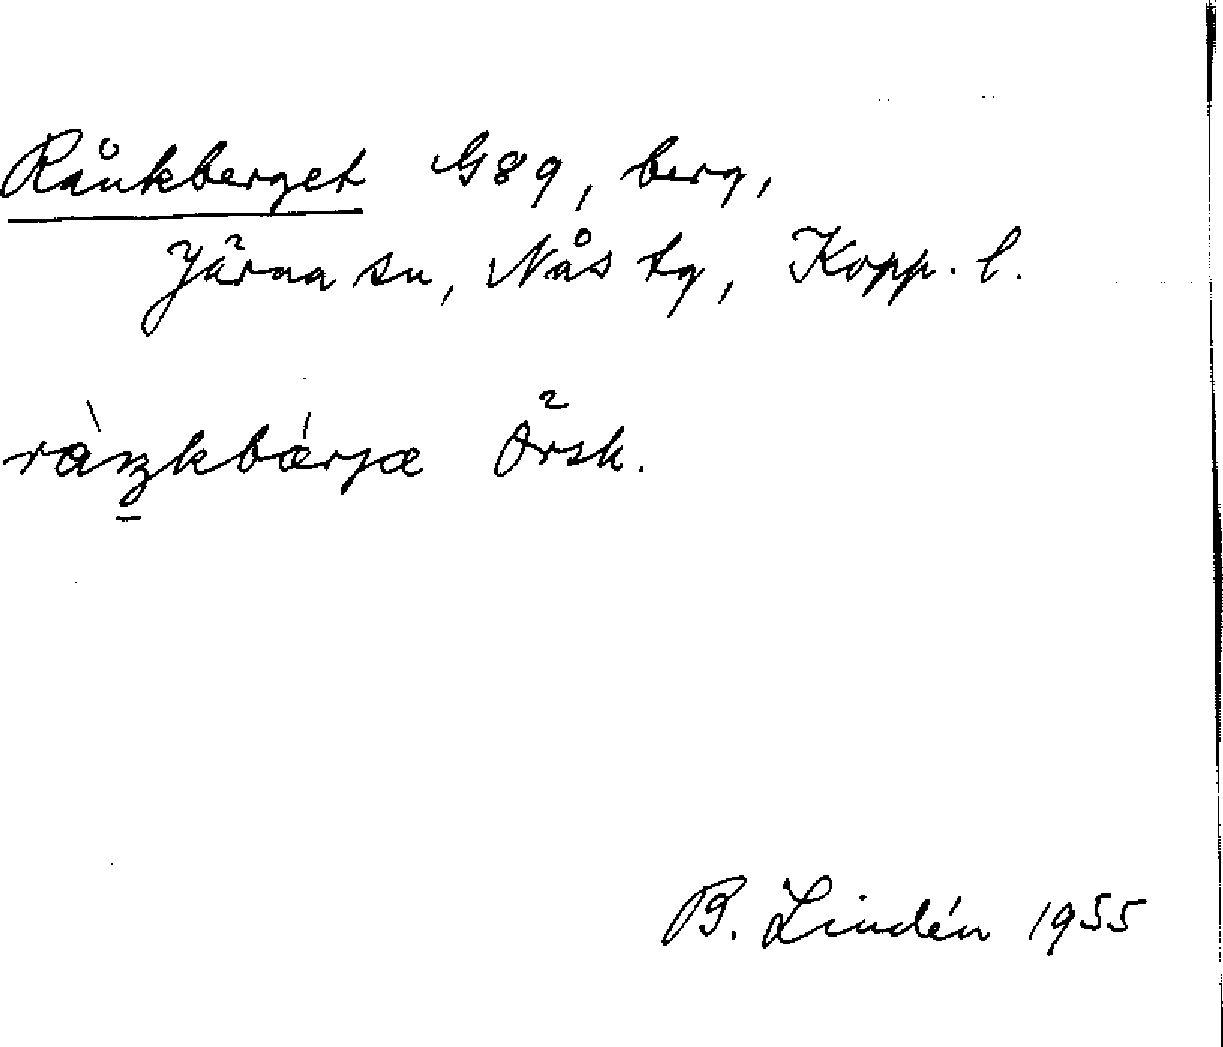 Rånkberget G89, berg,
Järna sn, Nås tg, Kopp. l.
Örsk.
B. Lindén 1955